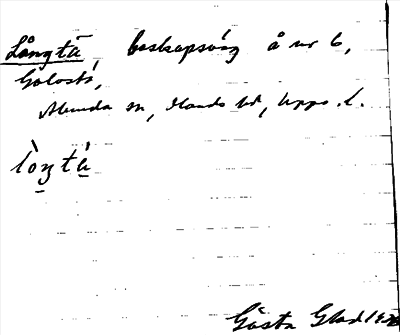 Långtå, boskapsväg å nr 6,
Gölostö,
Almunda sn, Olands hd, Upps. l.
lòŋtá
Gösta Glad 1936